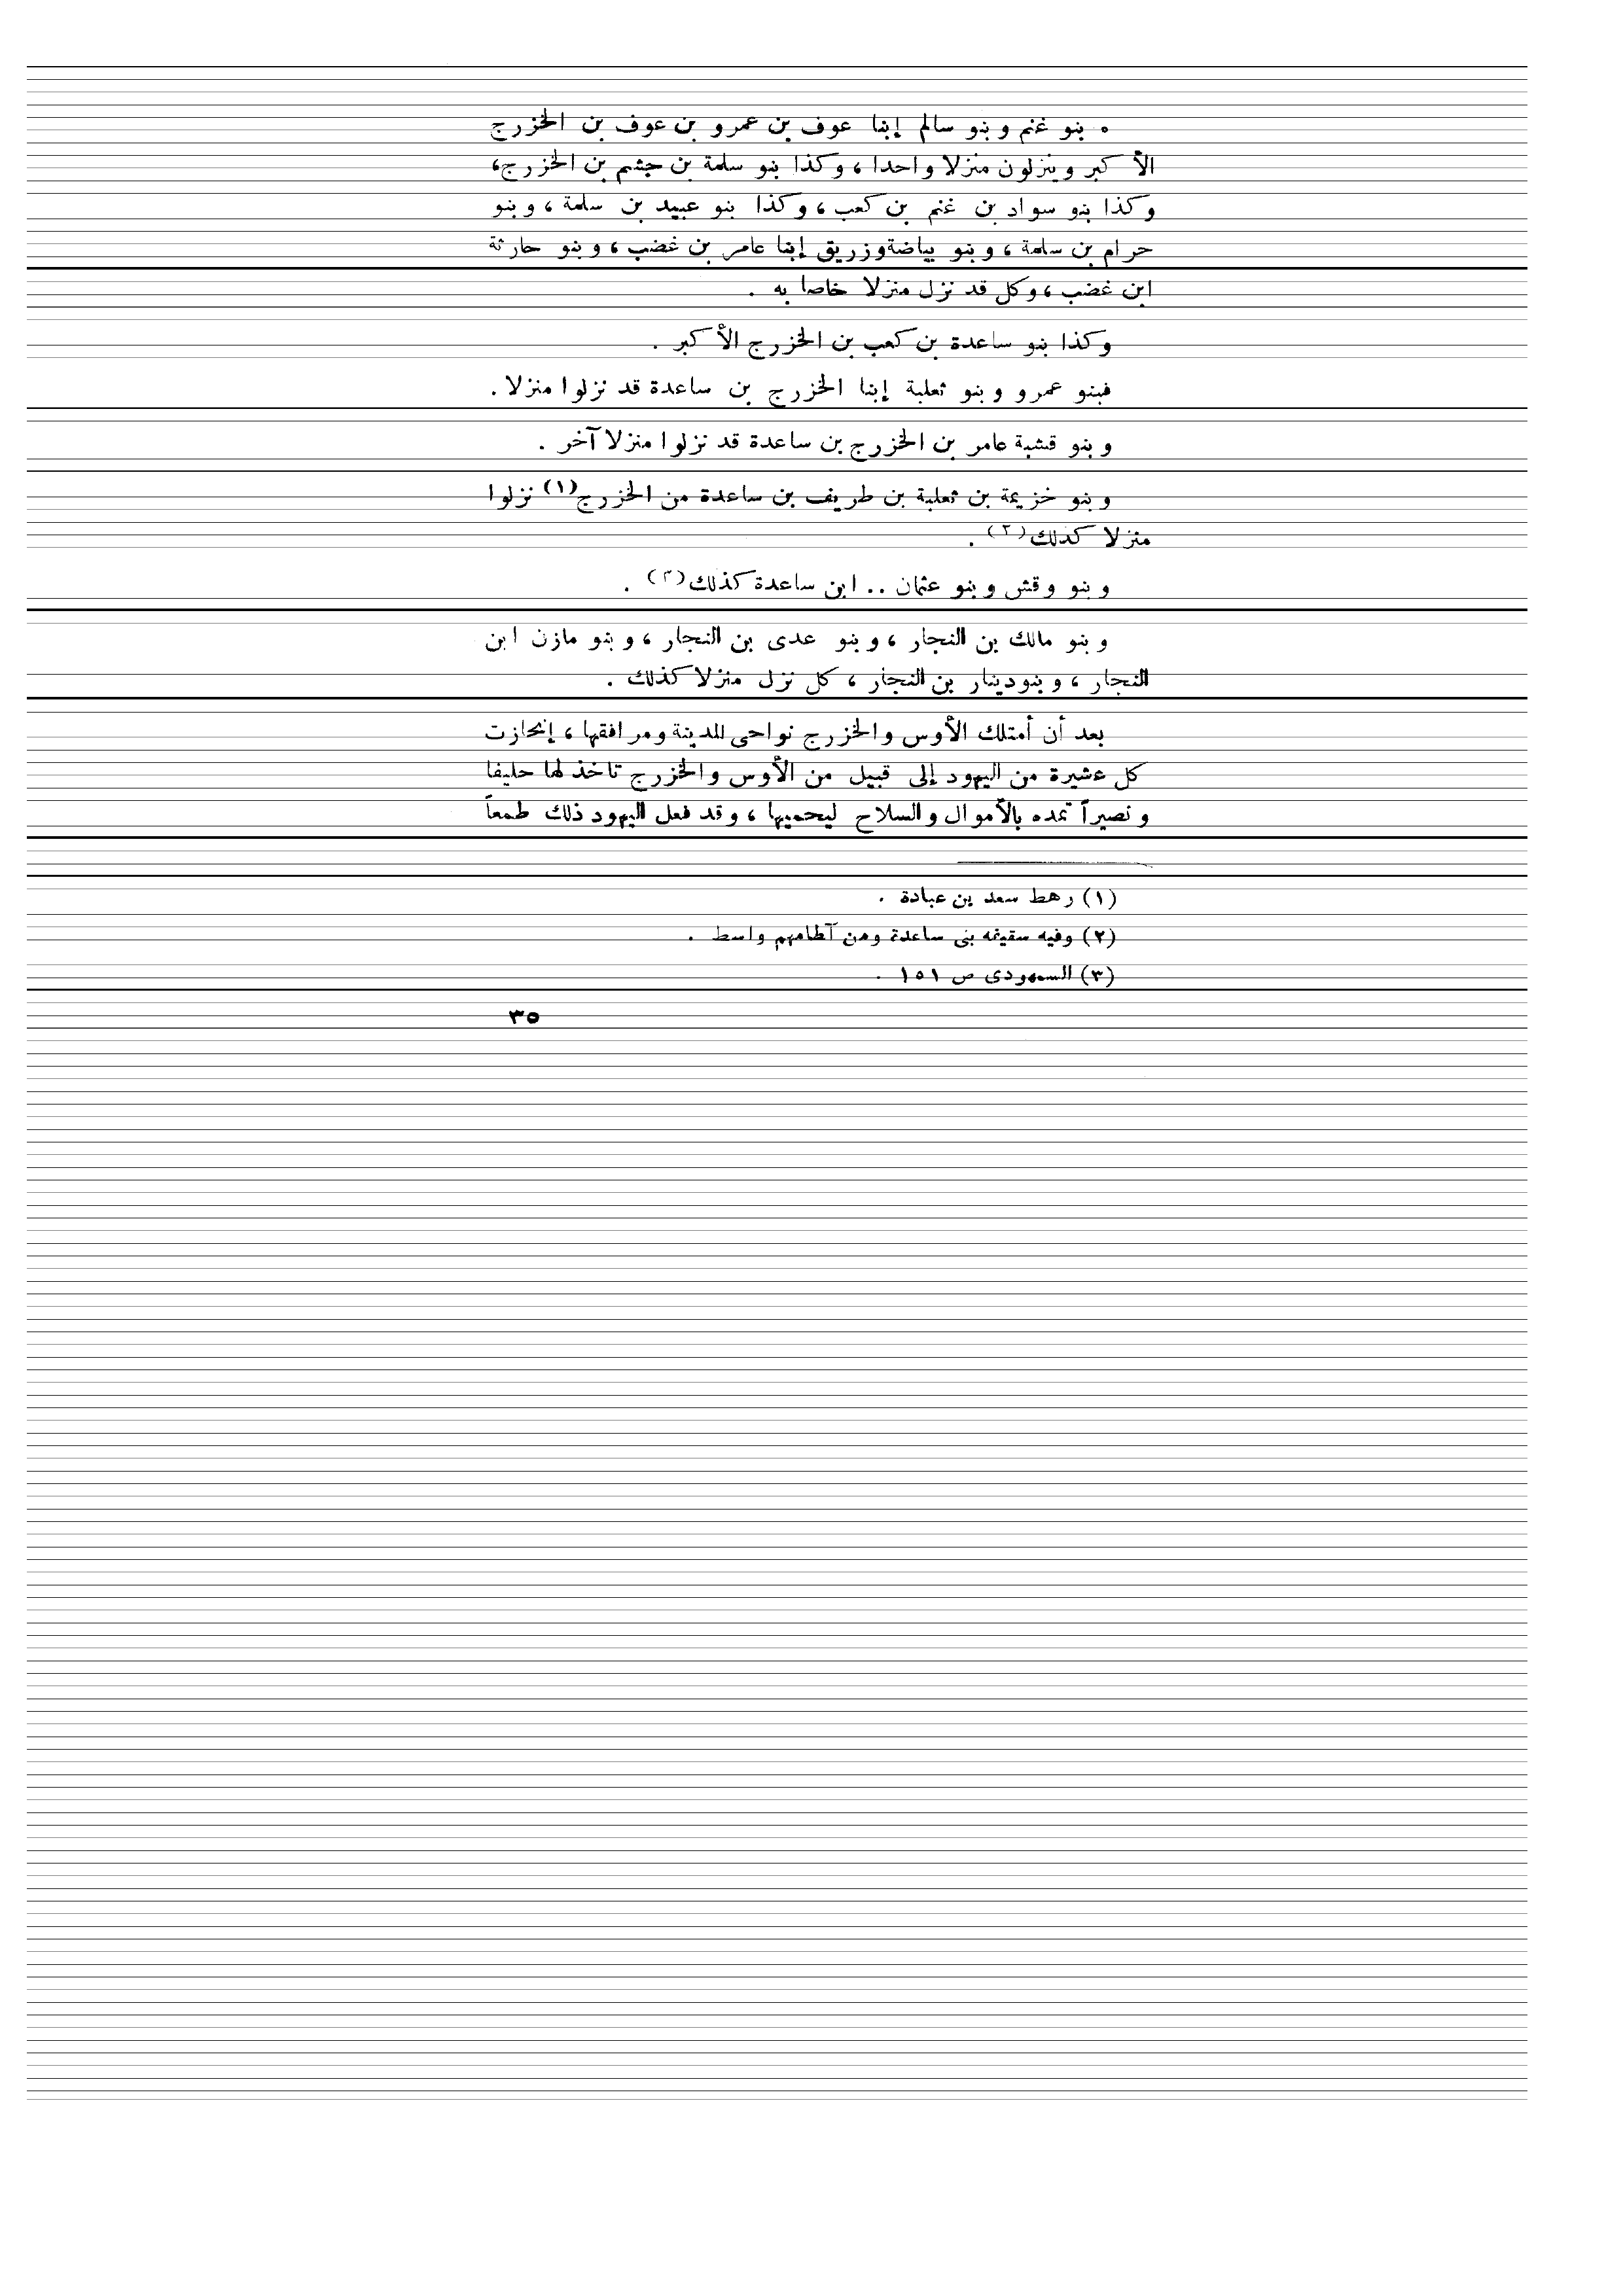 ° بنو غنم وبنو سالم إبنا عوف بن عمرو بن عوف بن الخزرج
الأكبر وينزلون منزلا واحدا ، وكذا بنو سلمة بن جشم بن الخزرج،
وكذا بنو سواد بن غنم بن كعب ، وكذا بنو عبيد بن سلمة ، وبنو
حرام بن سلمة ، وبنو بياضة وزريق إبنا عامر بن غضب ، وبنو حارثة
ابن غضب ، وكل قد نزل منزلا خاصا به .
وكذا بنو ساعدة بن كعب بن الخزرج الأكبر .
فبنو عمرو وبنو ثعلبة إبنا الخزرج بن ساعدة قد نزلوا منزلا .
وبنو قشبة عامر بن الخزرج بن ساعدة قد نزلوا منزلا آخر .
وبنو خزيمة بن ثعلبة بن طريف بن ساعدة من الخزرج(١) نزلوا
منزلا كذلك(٢) .
وبنو وقش وبنو عثمان .. ابن ساعدة كذلك(٣) .
وبنو مالك بن النجار ، وبنو عدى بن النجار ، وبنو مازن ابن
النجار ، وبنو دينار بن النجار ، كل نزل منزلا كذلك .
بعد أن أمتلك الأوس والخزرج نواحى المدينة ومرافقها ، إنحازت
كل عشيرة من اليهود إلى قبيل من الأوس والخزرج تاخذ لها حليفا
ونصيراً تمده بالأموال والسلاح ليحميها ، وقد فعل اليهود ذلك طمعاً
(١) رهط سعد بن عبادة .
(٢) وفيه سقيفه بنى ساعدة ومن آطامهم واسط .
(٣) السمهودى ص ١٥١ .
٣٥